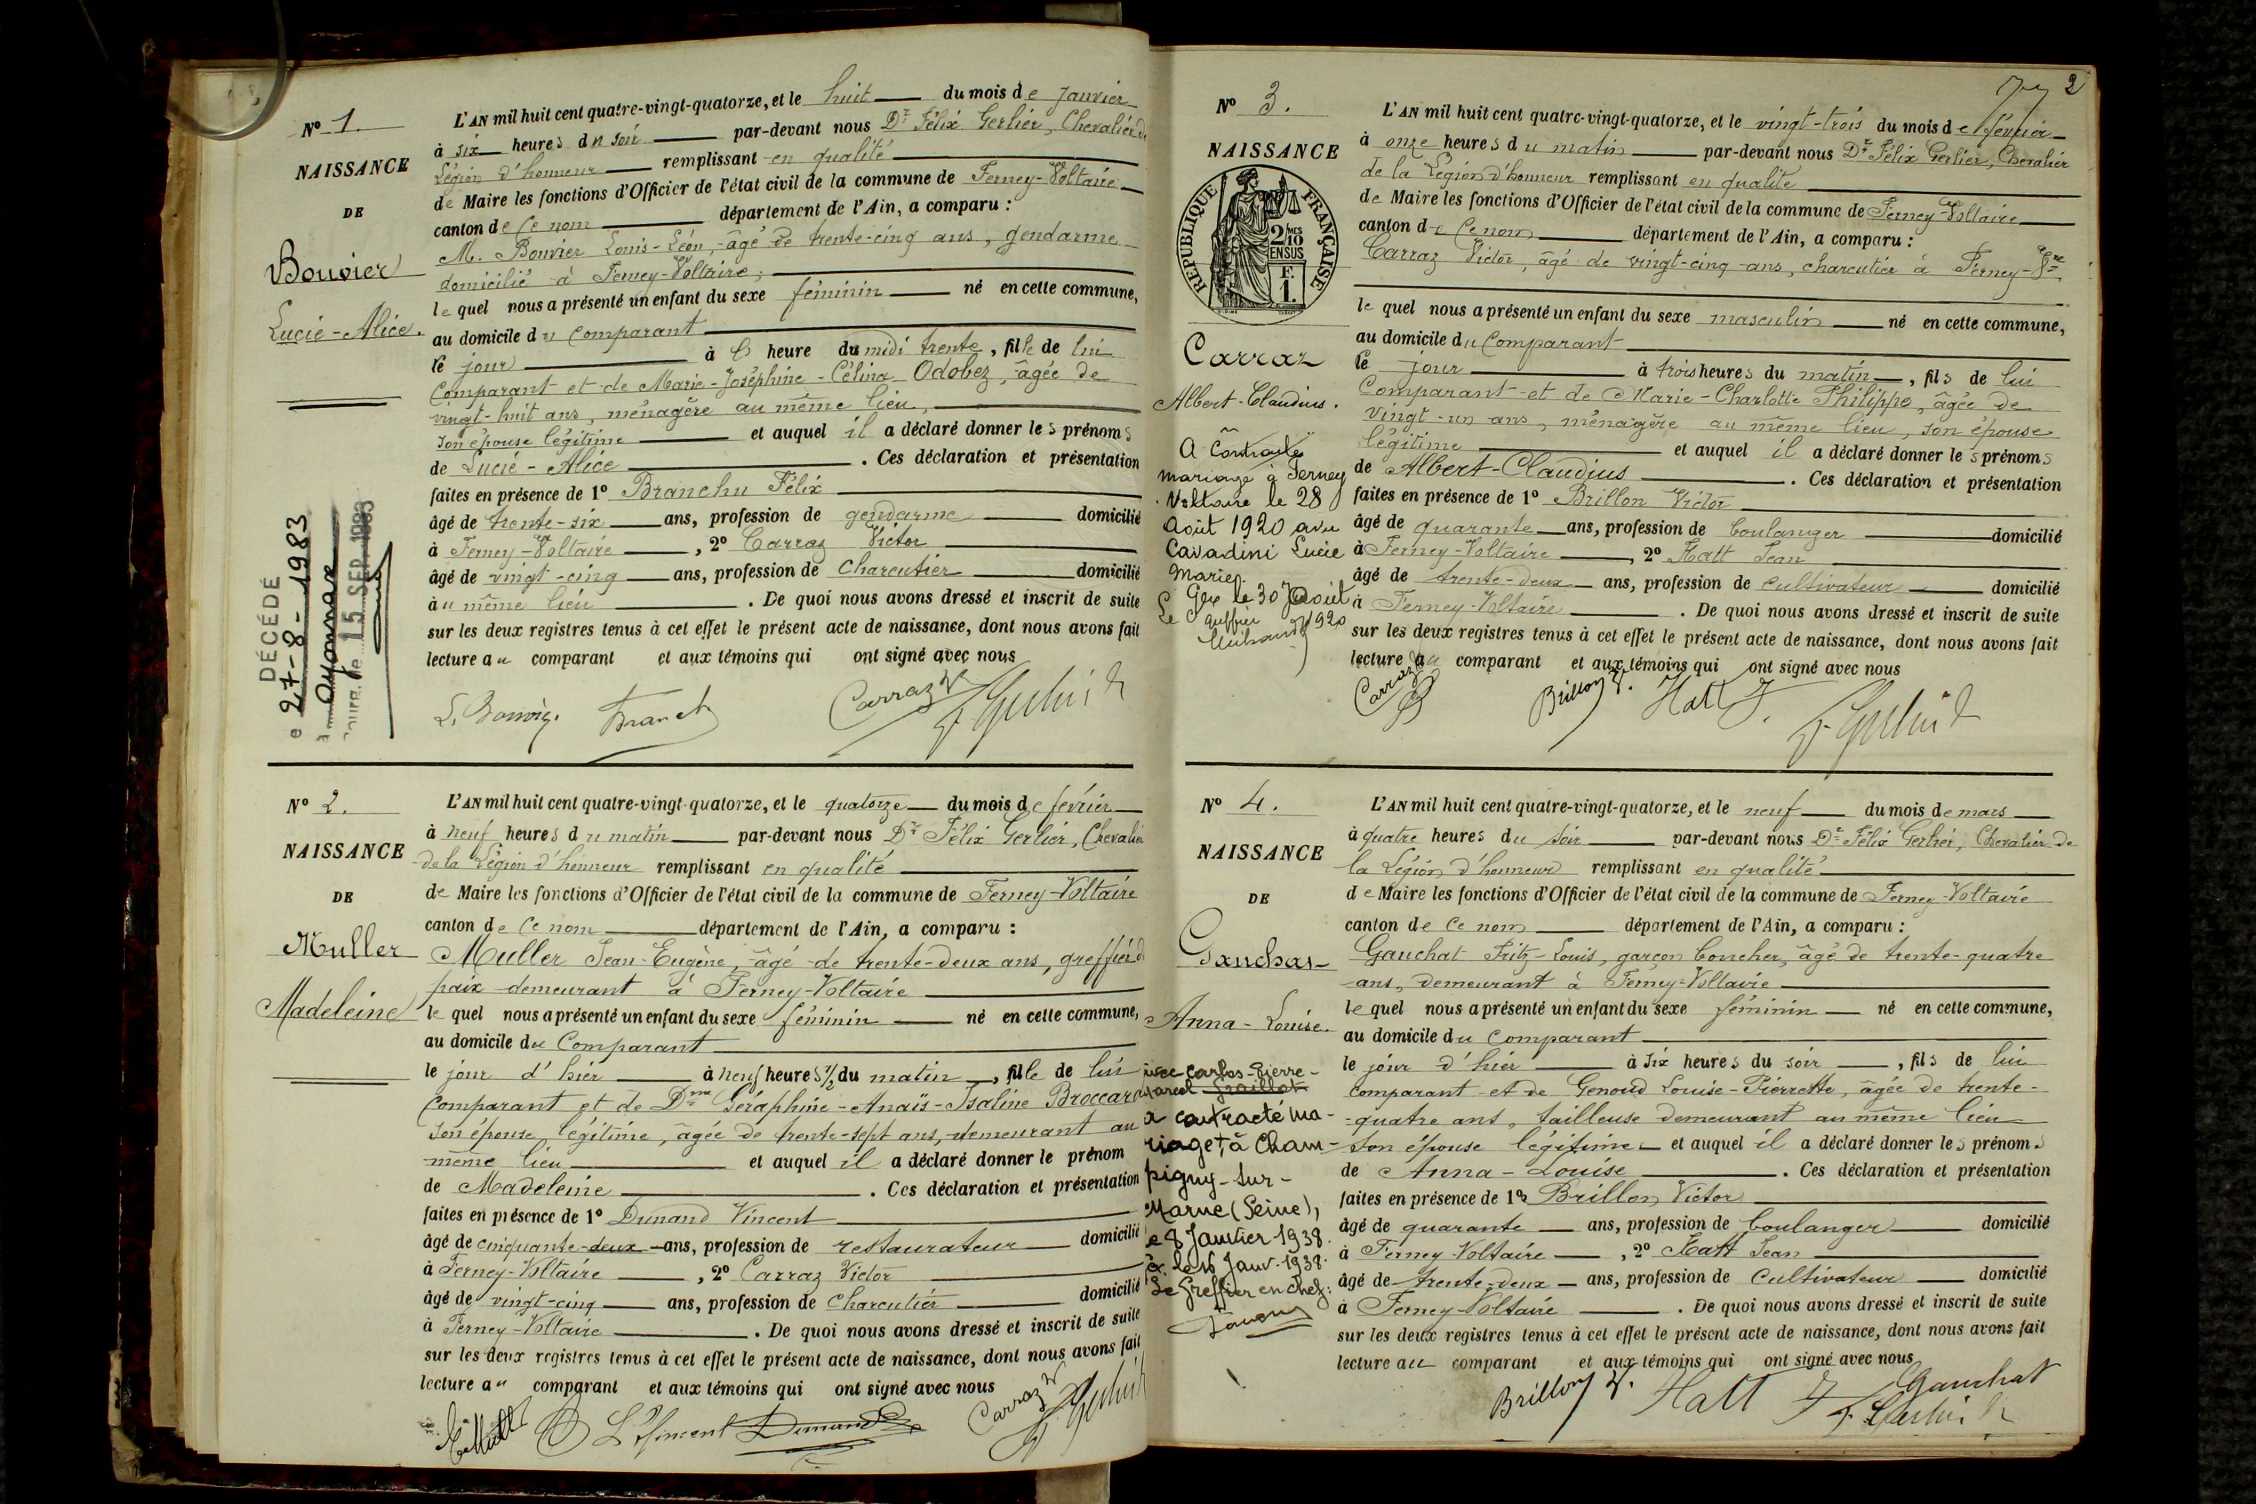 N° 1.
NAISSANCE
DE
Bouvier
Lucie-Alice.
DÉCÉDÉ
le 27-8-1983
à Oyonnax
15 SEP. 1983
L'AN mil huit cent quatre-vingt-quatorze, et le huit du mois de Janvier
à six heures du soir par-devant nous Dr Félix Gerlier, Chevalier de
Légion d'honneur remplissant en qualité
de Maire les fonctions d'Officier de l'état civil de la commune de Ferney-Voltaire
canton de Ce nom département de l'Ain, a comparu :
M. Bouvier Louis-Léon, âgé de trente-cinq ans, gendarme
domicilié à Ferney-Voltaire;
le quel nous a présenté un enfant du sexe féminin né en cette commune,
au domicile du Comparant
le jour à heure du midi trente, fille de lui
Comparant et de Marie-Joséphine-Célina Odobez, âgée de
vingt-huit ans, ménagère au même lieu,
son épouse légitime et auquel il a déclaré donner les prénoms
de Lucie-Alice. Ces déclaration et présentation
faites en présence de 1° Branchu Félix
âgé de trente-six ans, profession de gendarme domicilié
à Ferney-Voltaire, 2° Carraz Victor
âgé de vingt-cinq ans, profession de Charcutier domicilié
au même lieu. De quoi nous avons dressé et inscrit de suite
sur les deux registres tenus à cet effet le présent acte de naissance, dont nous avons fait
lecture au comparant et aux témoins qui ont signé avec nous
Carraz V
N° 2.
NAISSANCE
DE
Muller
Madeleine
L'AN mil huit cent quatre-vingt-quatorze, et le quatorze du mois de février
à neuf heures du matin par-devant nous Dr Félix Gerlier, Chevalier
de la Légion d'honneur remplissant en qualité
de Maire les fonctions d'Officier de l'état civil de la commune de Ferney-Voltaire
canton de Ce nom département de l'Ain, a comparu :
Muller Jean-Eugène, âgé de trente-deux ans, greffier de
paix demeurant à Ferney-Voltaire
le quel nous a présenté un enfant du sexe féminin né en cette commune,
au domicile du Comparant
le jour d'hier à neuf heures 1/2 du matin, fille de lui
Comparant et de Dme Séraphine-Anaïs-Isaline Broccard
son épouse légitime, âgée de trente-sept ans, demeurant au
même lieu et auquel il a déclaré donner le prénom
de Madeleine. Ces déclaration et présentation
faites en présence de 1° Dunand Vincent
âgé de cinquante-deux ans, profession de restaurateur domicilié
à Ferney-Voltaire, 2° Carraz Victor
âgé de vingt-cinq ans, profession de Charcutier domicilié
à Ferney-Voltaire. De quoi nous avons dressé et inscrit de suite
sur les deux registres tenus à cet effet le présent acte de naissance, dont nous avons fait
lecture au comparant et aux témoins qui ont signé avec nous
Vincent Dunand Carraz V
2
N° 3.
NAISSANCE
RÉPUBLIQUE FRANÇAISE
2/10
EN SUS
F.
1.
Carraz
Albert-Claudius.
A Contracté
mariage à Ferney
Voltaire le 28
Août 1920 avec
Cavadini Lucie
Marie.
Gex le 30 Août
1920
Le Greffier
L'AN mil huit cent quatre-vingt-quatorze, et le vingt-trois du mois de février
à onze heures du matin par-devant nous Dr Félix Gerlier, Chevalier
de la Légion d'honneur remplissant en qualité
de Maire les fonctions d'Officier de l'état civil de la commune de Ferney-Voltaire
canton de Ce nom département de l'Ain, a comparu :
Carraz Victor, âgé de vingt-cinq ans, charcutier à Ferney-Vre
le quel nous a présenté un enfant du sexe masculin né en cette commune,
au domicile du Comparant
le jour à trois heures du matin, fils de lui
Comparant et de Marie-Charlotte Philippe, âgée de
vingt-un ans, ménagère au même lieu, son épouse
légitime et auquel il a déclaré donner les prénoms
de Albert-Claudius. Ces déclaration et présentation
faites en présence de 1° Brillon Victor
âgé de quarante ans, profession de boulanger domicilié
à Ferney-Voltaire, 2° Hatt Jean
âgé de trente-deux ans, profession de cultivateur domicilié
à Ferney-Voltaire. De quoi nous avons dressé et inscrit de suite
sur les deux registres tenus à cet effet le présent acte de naissance, dont nous avons fait
lecture au comparant et aux témoins qui ont signé avec nous
Carraz V Brillon V. Hatt J.
N° 4.
NAISSANCE
DE
Gauchat
Anna-Louise.
avec Carlos-Pierre-
Marcel Graillot
a contracté ma-
riage à Cham-
pigny-sur-
Marne (Seine),
le 8 Janvier 1938.
Gex le 16 Janv. 1938.
Le Greffier en chef:
L'AN mil huit cent quatre-vingt-quatorze, et le neuf du mois de mars
à quatre heures du soir par-devant nous Dr Félix Gerlier, Chevalier de
la Légion d'honneur remplissant en qualité
de Maire les fonctions d'Officier de l'état civil de la commune de Ferney-Voltaire
canton de Ce nom département de l'Ain, a comparu :
Gauchat Fritz-Louis, garçon boucher, âgé de trente-quatre
ans, demeurant à Ferney-Voltaire
le quel nous a présenté un enfant du sexe féminin né en cette commune,
au domicile du Comparant
le jour d'hier à six heures du soir, fils de lui
Comparant et de Genoud Louise-Pierrette, âgée de trente-
-quatre ans, tailleuse demeurant au même lieu
son épouse légitime et auquel il a déclaré donner les prénoms
de Anna-Louise. Ces déclaration et présentation
faites en présence de 1° Brillon Victor
âgé de quarante ans, profession de boulanger domicilié
à Ferney-Voltaire, 2° Hatt Jean
âgé de trente-deux ans, profession de Cultivateur domicilié
à Ferney-Voltaire. De quoi nous avons dressé et inscrit de suite
sur les deux registres tenus à cet effet le présent acte de naissance, dont nous avons fait
lecture au comparant et aux témoins qui ont signé avec nous
Brillon V. Hatt J Gauchat